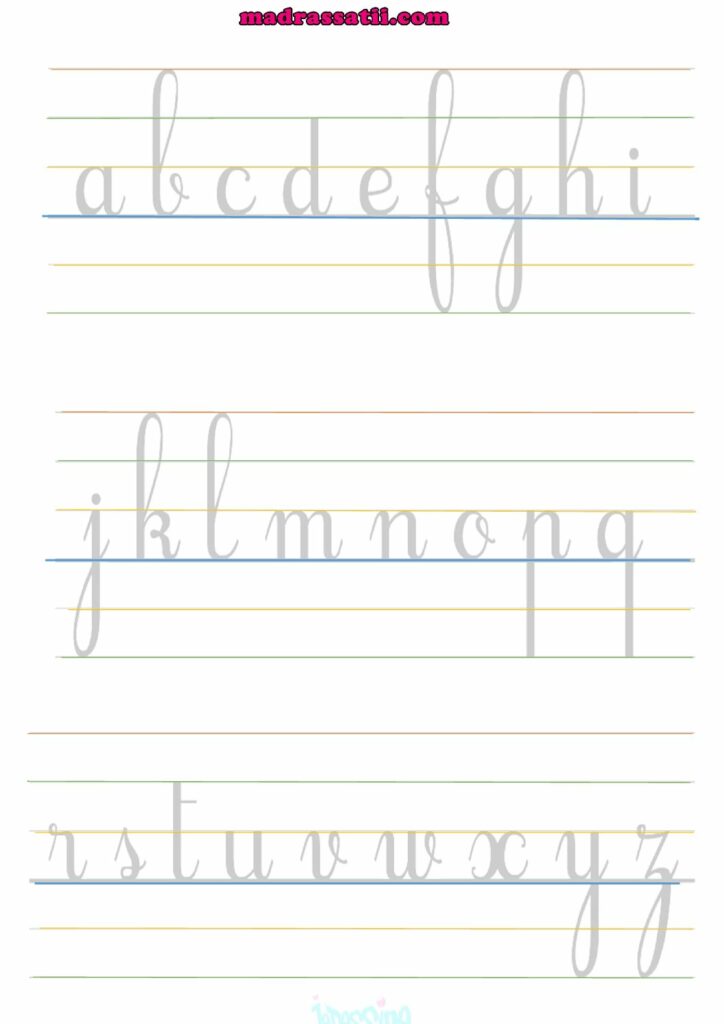 madrassatii.com
a b c d e f g h i
j k l m n o p q
r s t u v w x y z